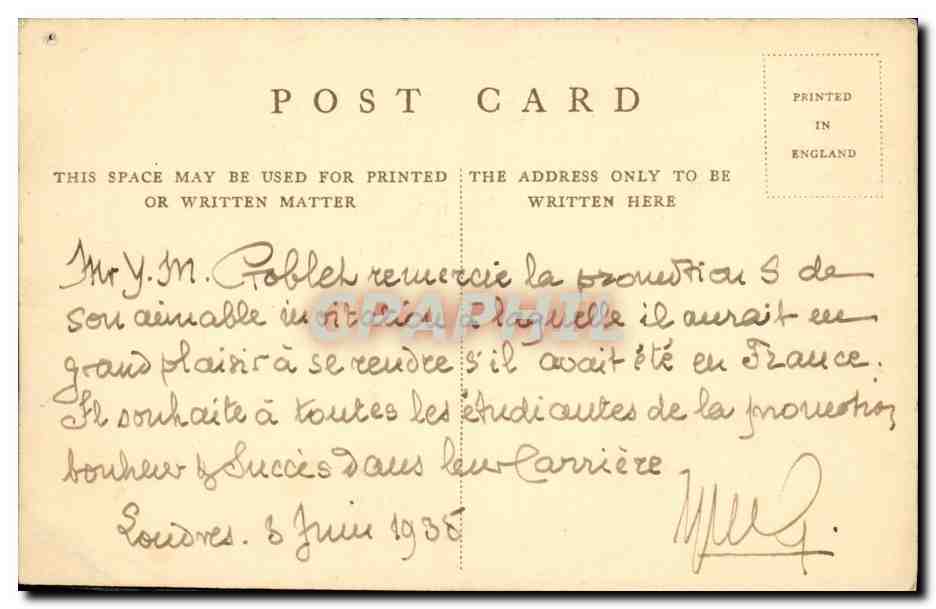 POST CARD
PRINTED
IN
ENGLAND
THIS SPACE MAY BE USED FOR PRINTED
OR WRITTEN MATTER
THE ADDRESS ONLY TO BE
WRITTEN HERE
Mr Y. M. Goblet remercie la promotion S de
son aimable invitation à laquelle il aurait eu
grand plaisir à se rendre s'il avait été en France.
Il souhaite à toutes les étudiantes de la promotion
bonheur & Succès dans leur Carrière
Londres. 3 Juin 1935
YMG.
CPAPHIL